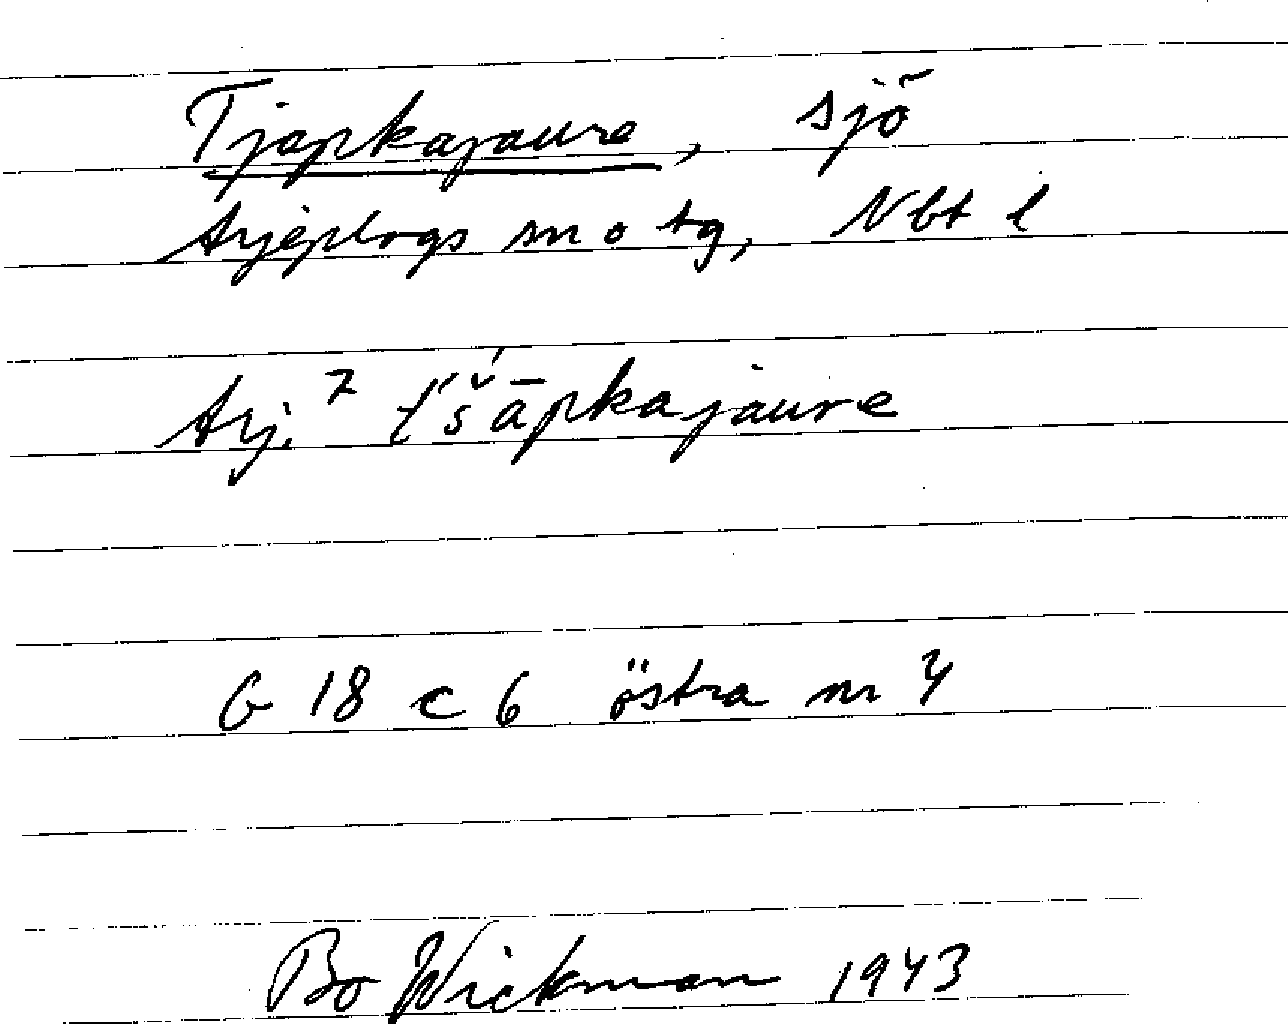 Tjapkajaure, sjö
Arjeplogs sn o tg, Nbt l
Arj. 7 t́š́āpkajaure
G 18 c 6 östra nr 4
Bo Wickman 1943